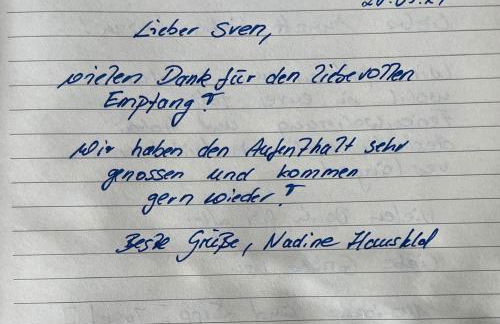 Lieber Sven,
vielen Dank für den liebevollen
Empfang!
Wir haben den Aufenthalt sehr
genossen und kommen
gern wieder!
Beste Grüße, Nadine